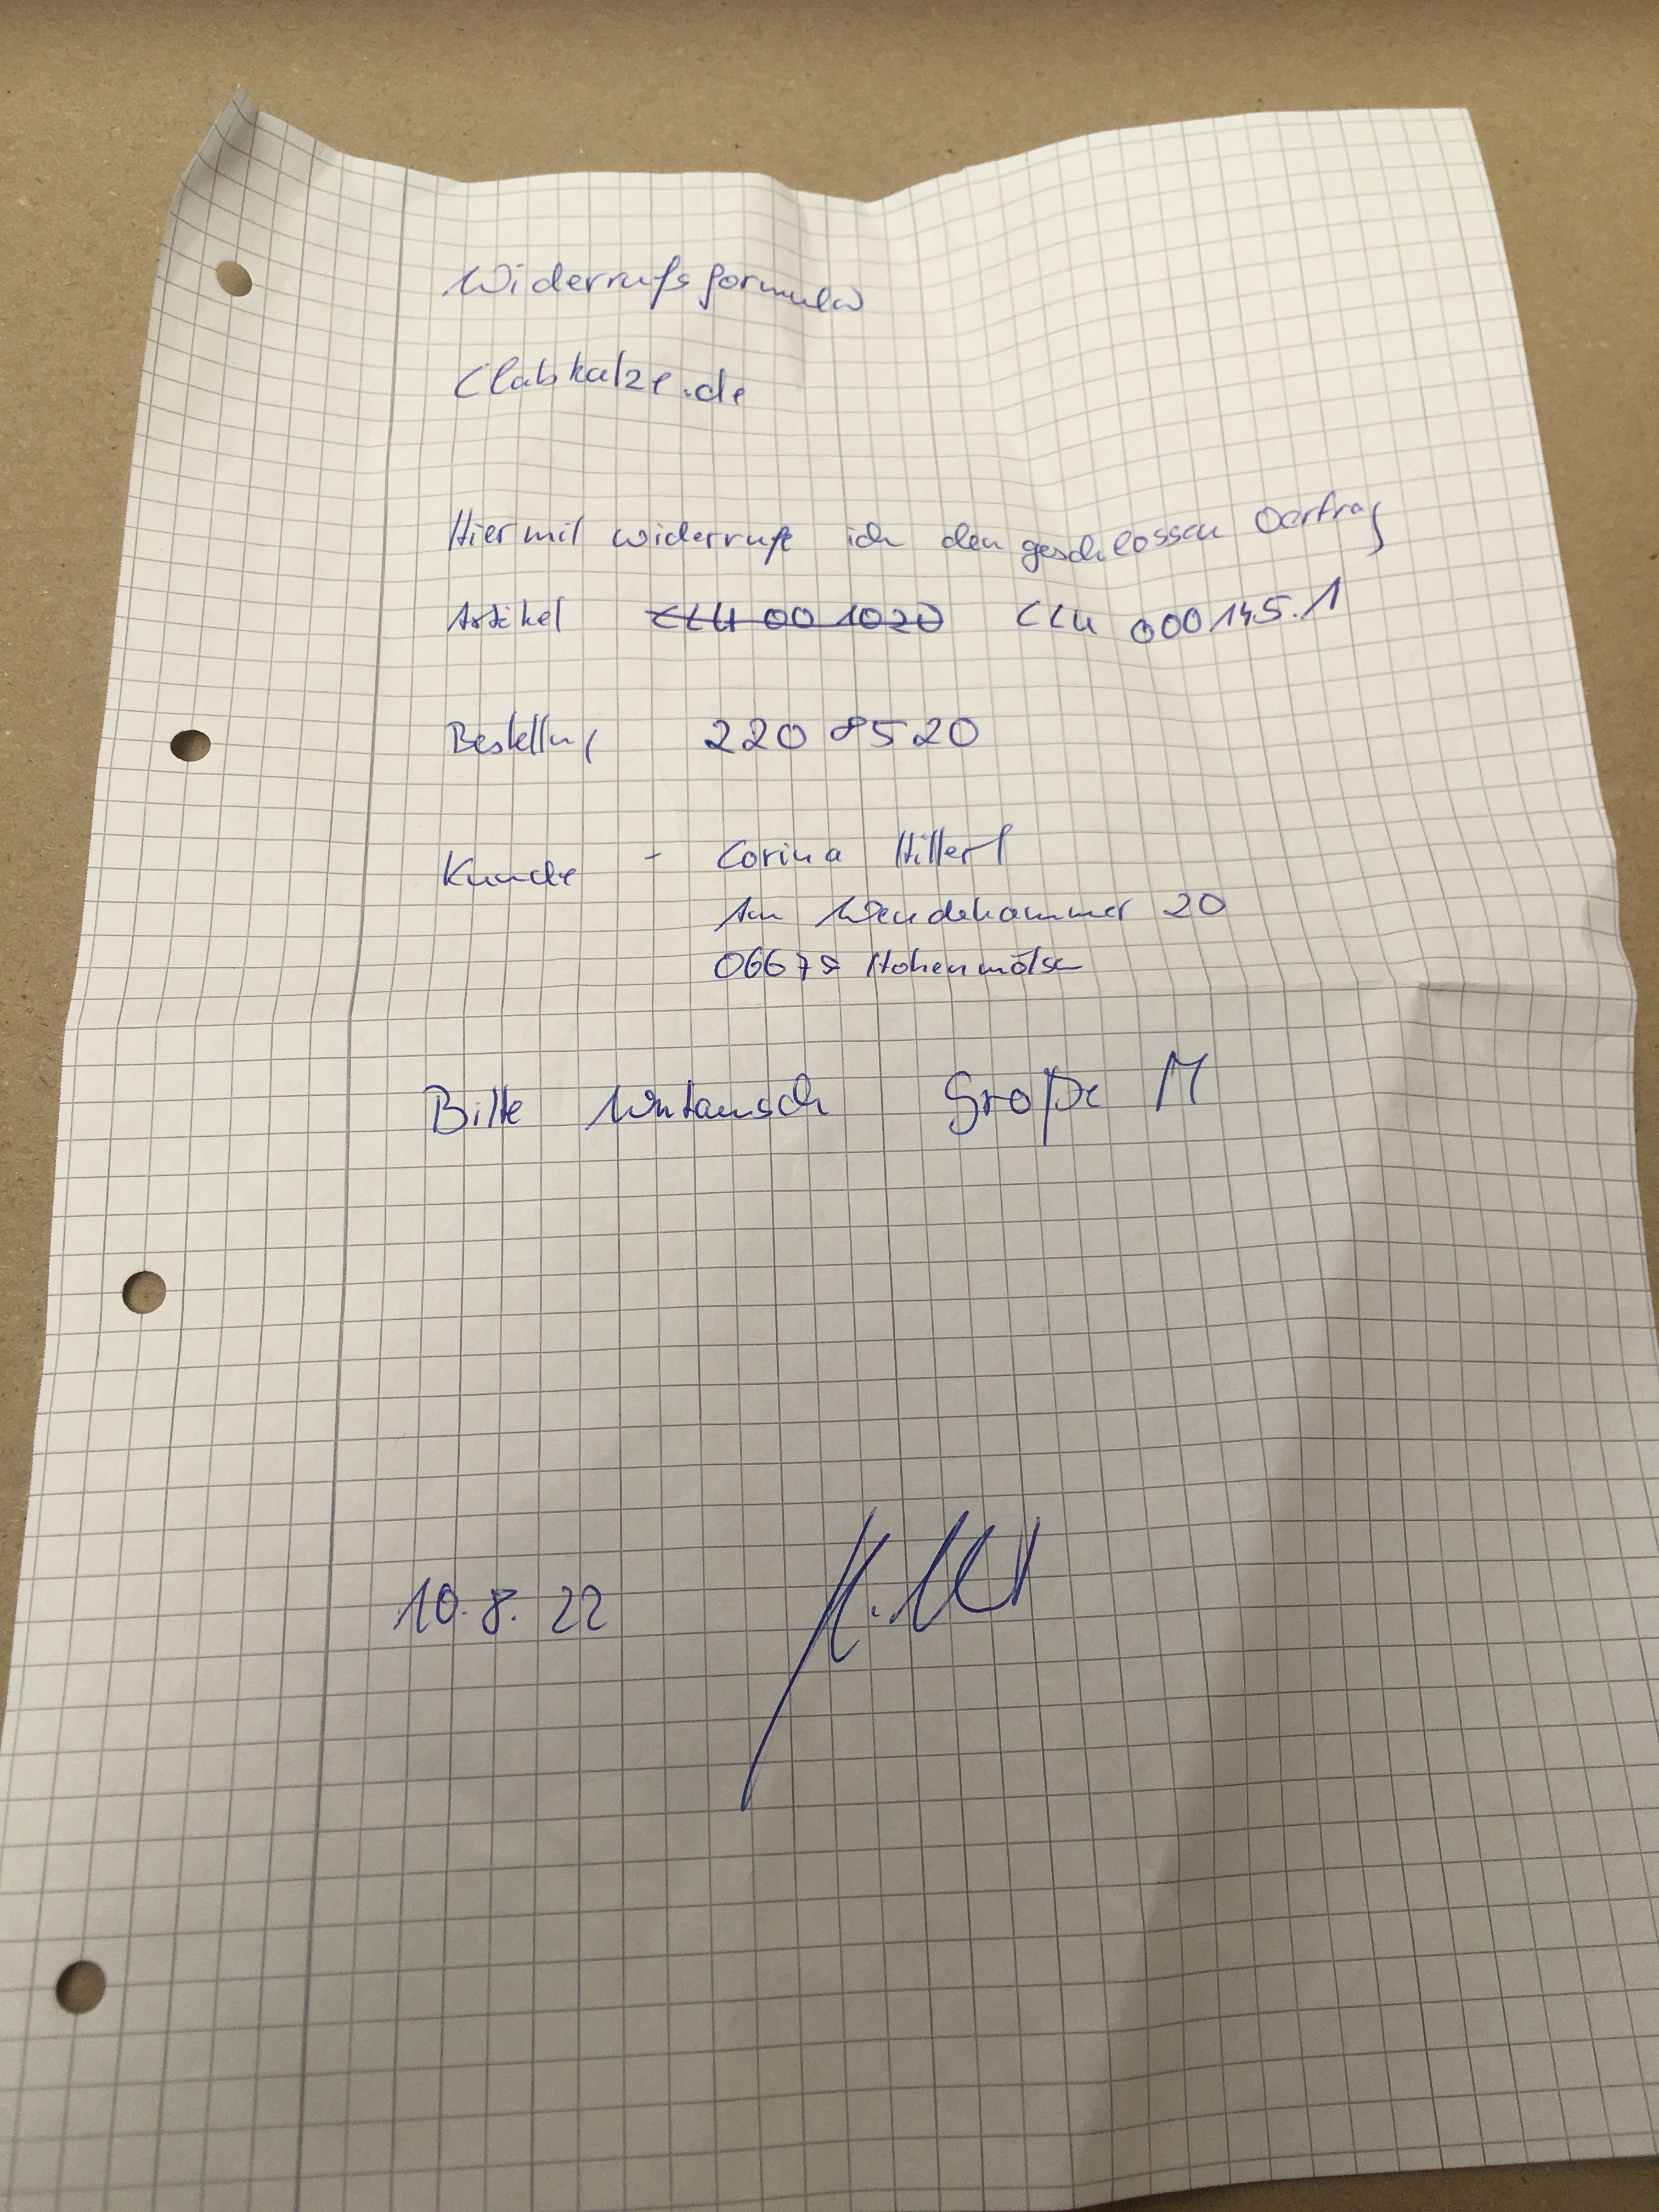 Widerrufsformular
Clabkatze.de
Hiermit widerrufe ich den geschlossen Vertrag
Artikel CLU 00 1020 CLU 000145.1
Bestellung 2208520
Kunde - Corina Hillert
Am Wendehammer 20
06679 Hohenmölsen
Bitte Umtausch Größe M
10.8.22